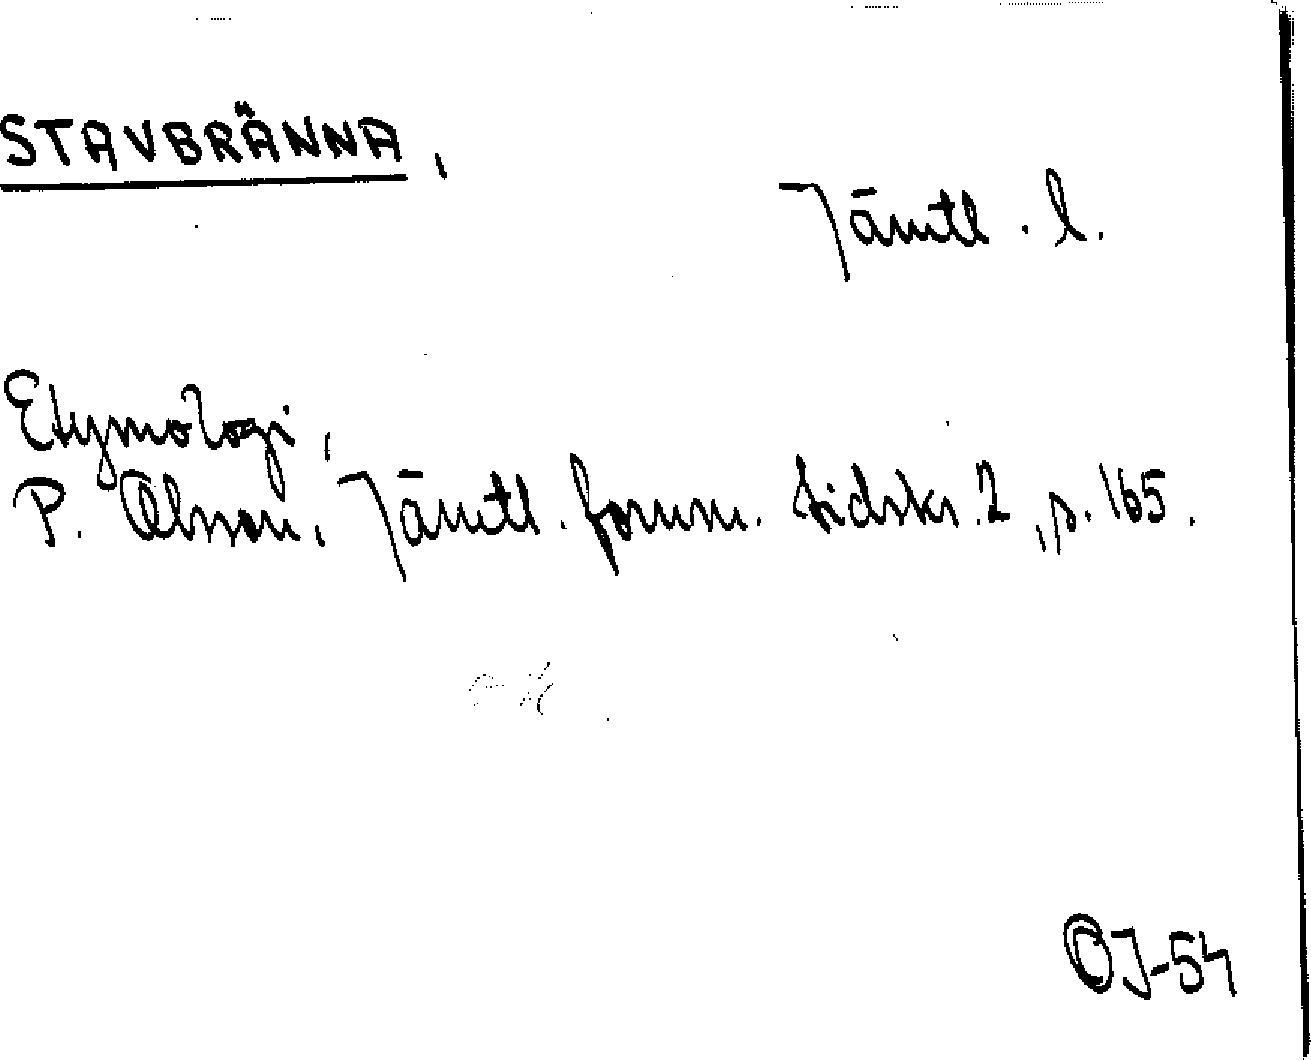 STAVBRÄNNA,
Jämtl. l.
Etymologi,
P. Olsson, Jämtl. fornm. tidskr. 2, s. 165.
OJ-54